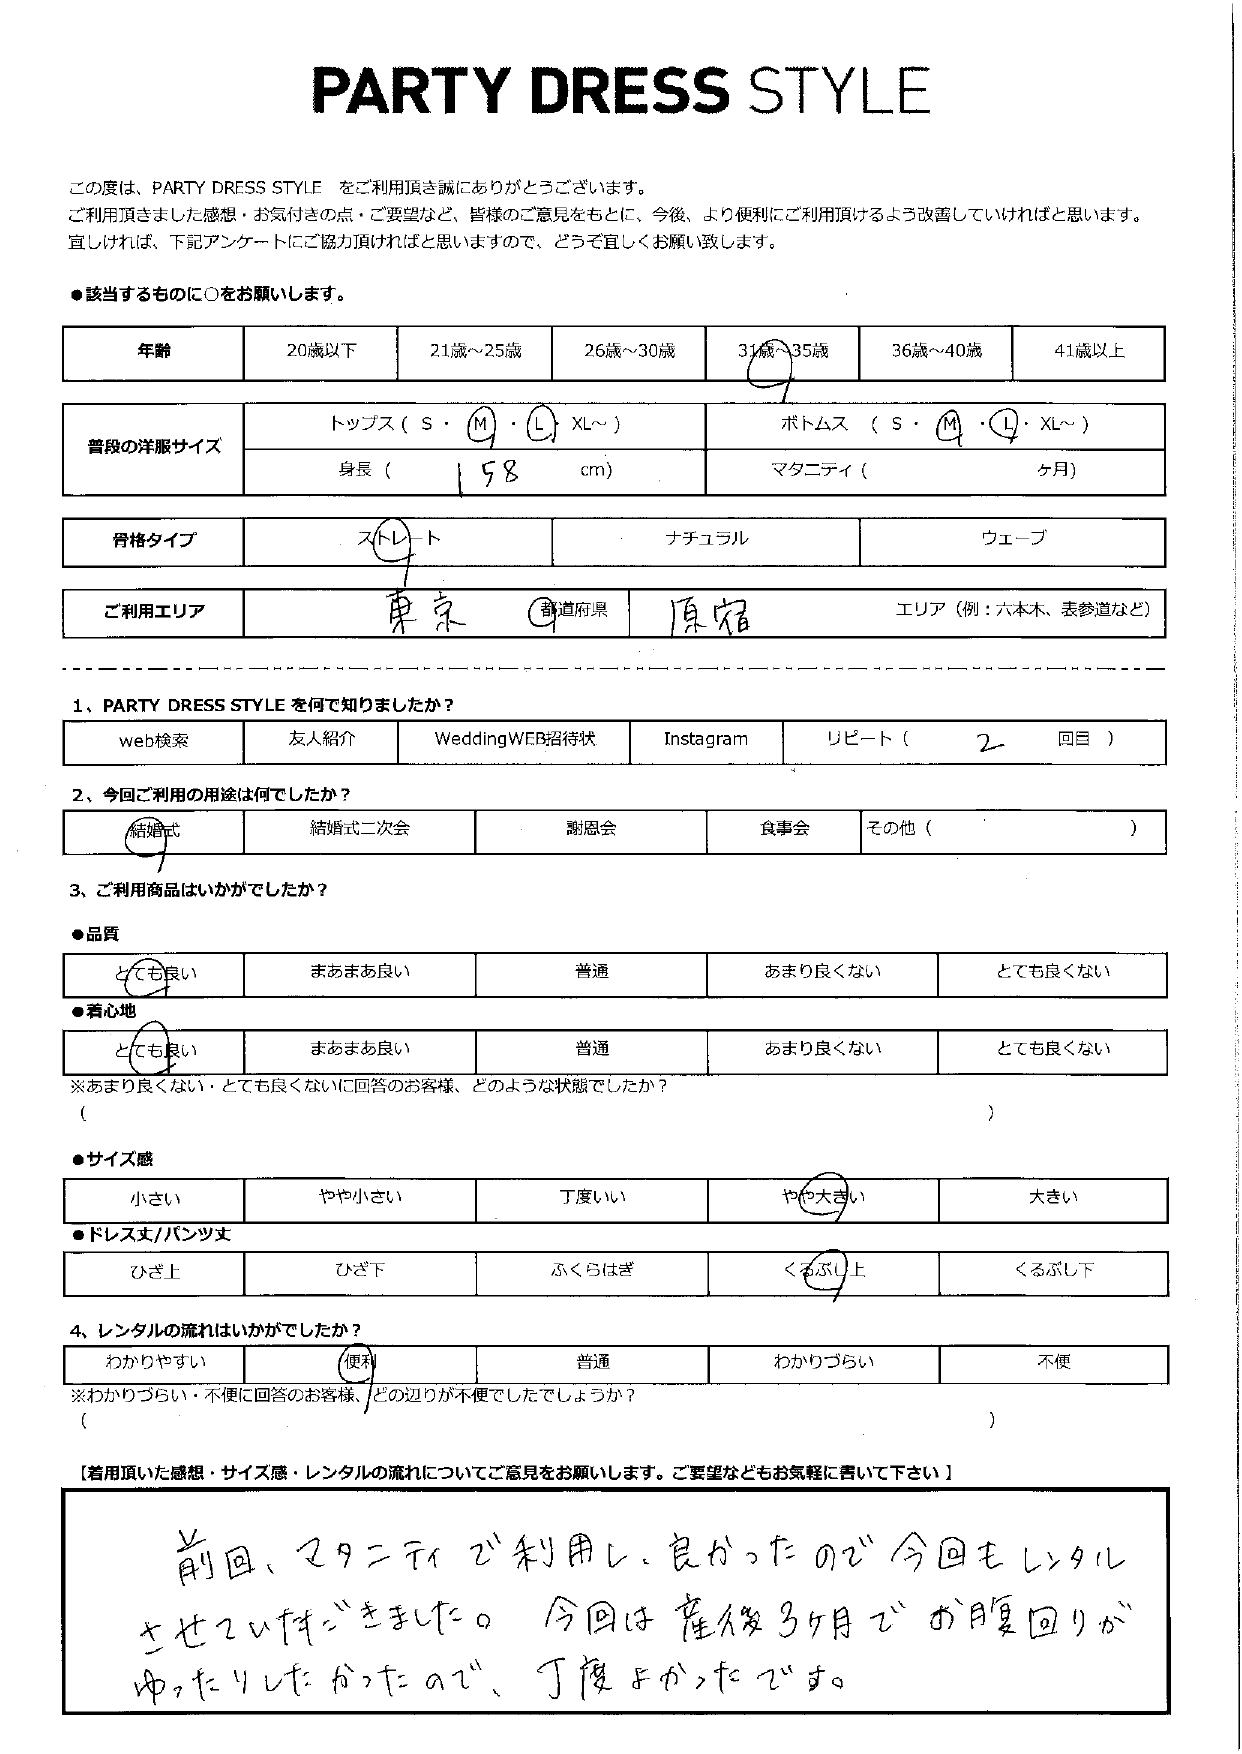 PARTY DRESS STYLE
この度は、PARTY DRESS STYLE　をご利用頂き誠にありがとうございます。
ご利用頂きました感想・お気付きの点・ご要望など、皆様のご意見をもとに、今後、より便利にご利用頂けるよう改善していければと思います。
宜しければ、下記アンケートにご協力頂ければと思いますので、どうぞ宜しくお願い致します。
●該当するものに○をお願いします。
年齢 20歳以下 21歳～25歳 26歳～30歳 31歳～35歳 36歳～40歳 41歳以上
普段の洋服サイズ トップス（ S ・ M ・ L ・ XL～ ） ボトムス （ S ・ M ・ L ・ XL～ ）
身長（ 158 cm） マタニティ（ ヶ月）
骨格タイプ ストレート ナチュラル ウェーブ
ご利用エリア 東京 都道府県 原宿 エリア（例：六本木、表参道など）
1、PARTY DRESS STYLE を何で知りましたか？
web検索 友人紹介 WeddingWEB招待状 Instagram リピート（ 2 回目 ）
2、今回ご利用の用途は何でしたか？
結婚式 結婚式二次会 謝恩会 食事会 その他（ ）
3、ご利用商品はいかがでしたか？
●品質
とても良い まあまあ良い 普通 あまり良くない とても良くない
●着心地
とても良い まあまあ良い 普通 あまり良くない とても良くない
※あまり良くない・とても良くないに回答のお客様、どのような状態でしたか？
（ ）
●サイズ感
小さい やや小さい 丁度いい やや大きい 大きい
●ドレス丈/パンツ丈
ひざ上 ひざ下 ふくらはぎ くるぶし上 くるぶし下
4、レンタルの流れはいかがでしたか？
わかりやすい 便利 普通 わかりづらい 不便
※わかりづらい・不便に回答のお客様、どの辺りが不便でしたでしょうか？
（ ）
【着用頂いた感想・サイズ感・レンタルの流れについてご意見をお願いします。ご要望などもお気軽に書いて下さい 】
前回、マタニティで利用し、良かったので今回もレンタル
させていただきました。 今回は産後3ヶ月でお腹回りが
ゆったりしたかったので、丁度よかったです。